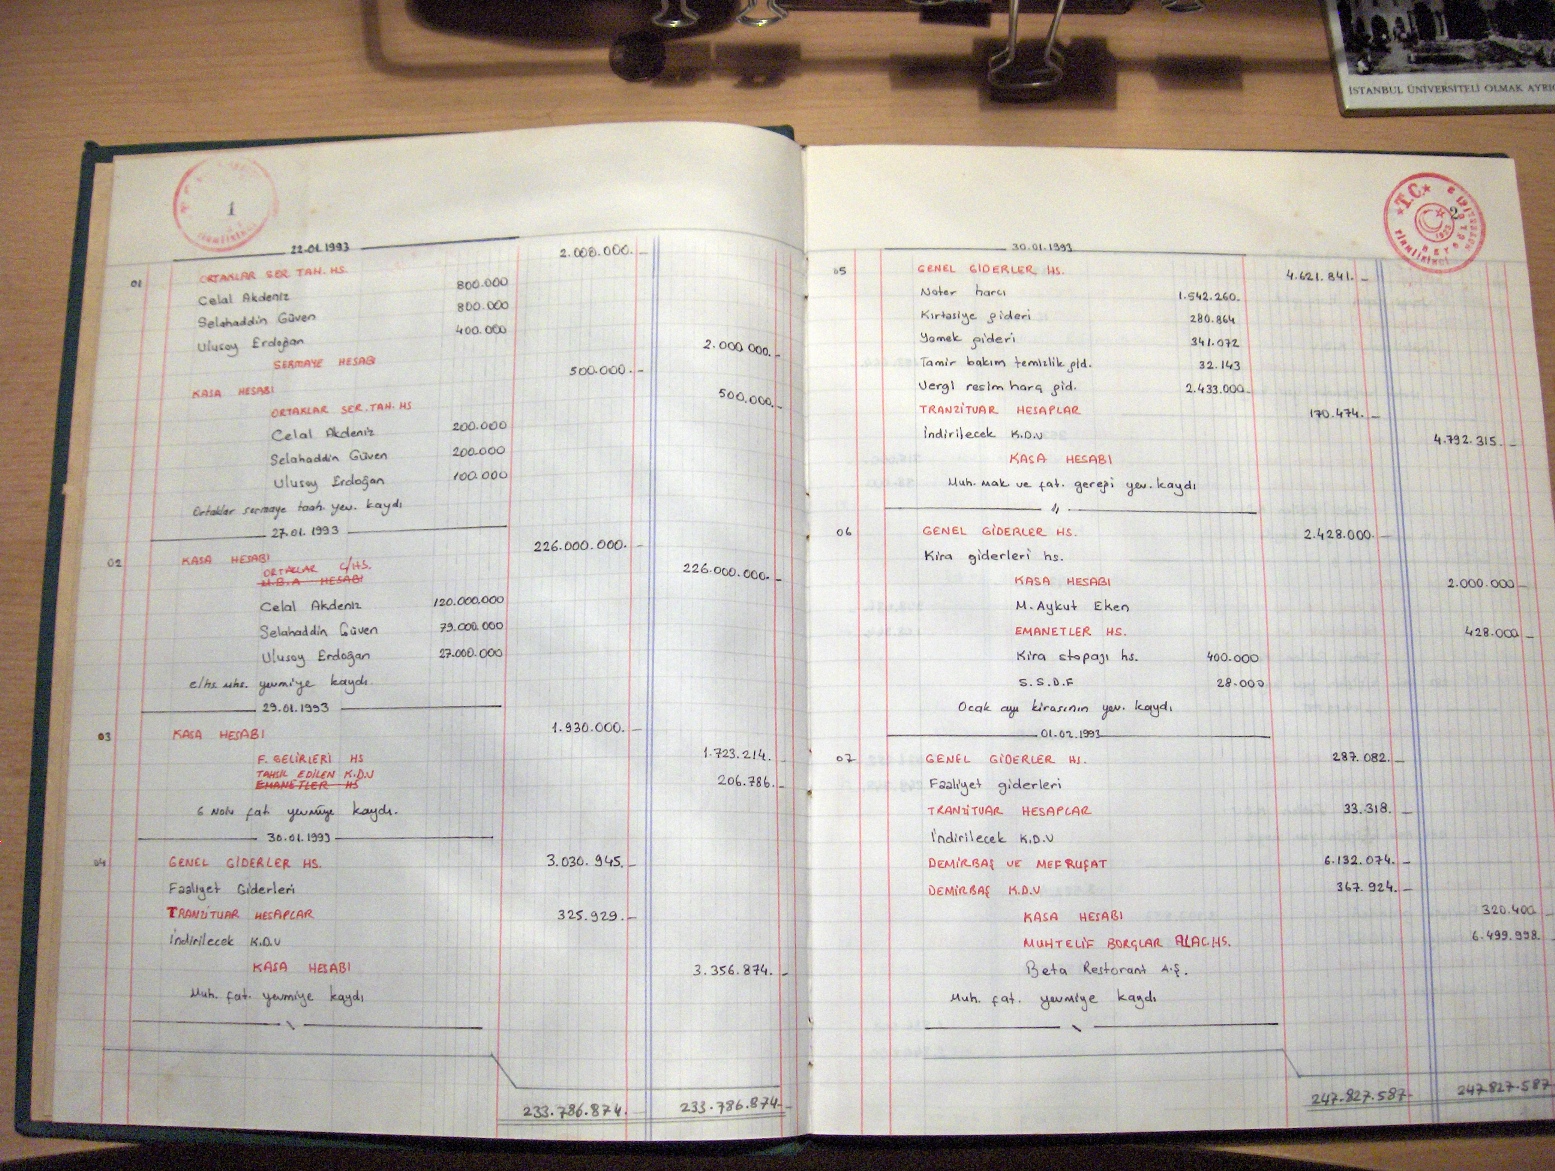 İSTANBUL ÜNİVERSİTELİ OLMAK AYRI
1
22.01.1993
2.008.000.
01 ORTAKLAR SER TAH. HS.
Celal Akdeniz 800.000
Selahaddin Güven 800.000
Ulusoy Erdoğan 400.000
SERMAYE HESABI 2.000.000.
KASA HESABI 500.000.
ORTAKLAR SER. TAH. HS 500.000.
Celal Akdeniz 200.000
Selahaddin Güven 200.000
Ulusoy Erdoğan 100.000
Ortaklar sermaye taah. yev. kaydı
27.01.1993
02 KASA HESABI 226.000.000.
ORTAKLAR C/HS. 226.000.000.
M.B.A HESABI
Celal Akdeniz 120.000.000
Selahaddin Güven 79.000.000
Ulusoy Erdoğan 27.000.000
c/hs. mhs. yevmiye kaydı.
29.01.1993
03 KASA HESABI 1.930.000.
F. GELİRLERİ HS 1.723.214.
TAHSİL EDİLEN K.D.V 206.786.
EMANETLER HS
6 Nolu fat yevmiye kaydı.
30.01.1993
04 GENEL GİDERLER HS. 3.030.945.
Faaliyet Giderleri
TRANZİTUAR HESAPLAR 325.929.
İndirilecek K.D.V
KASA HESABI 3.356.874.
Muh. fat. yevmiye kaydı
233.786.874. 233.786.874
T.C.
2
BEYOĞLU
30.01.1993
05 GENEL GİDERLER HS. 4.621.841.
Noter harcı 1.542.260.
Kırtasiye gideri 280.864
Yemek gideri 341.072
Tamir bakım temizlik gid. 32.143
Vergi resim harç gid. 2.433.000.
TRANZİTUAR HESAPLAR 170.474.
İndirilecek K.D.V 4.792.315.
KASA HESABI
Muh. mak ve fat. gereği yev. kaydı
//
06 GENEL GİDERLER HS. 2.428.000.
Kira giderleri hs.
KASA HESABI 2.000.000
M. Aykut Eken
EMANETLER HS. 428.000
Kira stopajı hs. 400.000
S.S.D.F 28.000
Ocak ayı kirasının yev. kaydı
01.02.1993
07 GENEL GİDERLER HS. 287.082.
Faaliyet giderleri
TRANZİTUAR HESAPLAR 33.318.
İndirilecek K.D.V
DEMİRBAŞ VE MEFRUŞAT 6.132.074.
DEMİRBAŞ K.D.V 367.924.
KASA HESABI 320.400
MUHTELİF BORÇLAR ALAC.HS. 6.499.998.
Beta Restorant A.Ş.
Muh. fat. yevmiye kaydı
247.827.587 247.827.587